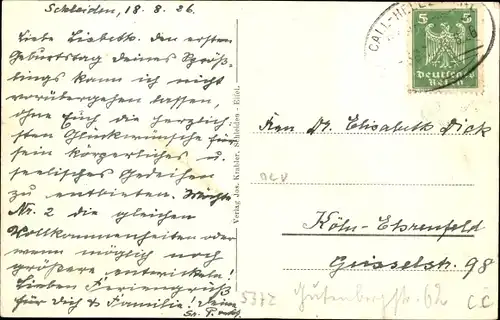 Schleiden, 18.8.26.
Liebe Lisbeth. Den ersten
Geburtstag deines Spröß-
lings kann ich nicht
vorübergehen lassen,
ohne Euch die herzlich-
sten Glückwünsche für
sein körperliches u.
seelisches Gedeihen
zu entbieten. Möchte
Nr. 2 die gleichen
Vollkommenheiten oder
wenn möglich noch
größere entwickeln!
Lieben Feriengruß
für Dich & Familie! Deine
Verlag Jos. Kmbler, Schleiden - Eifel.
CALL-HELLE
5 5
Deutsches
Reich
Frau Dr. Elisabeth Dick
Köln-Ehrenfeld
Geisselstr. 98
Gutenbergstr. 62
5372
CC